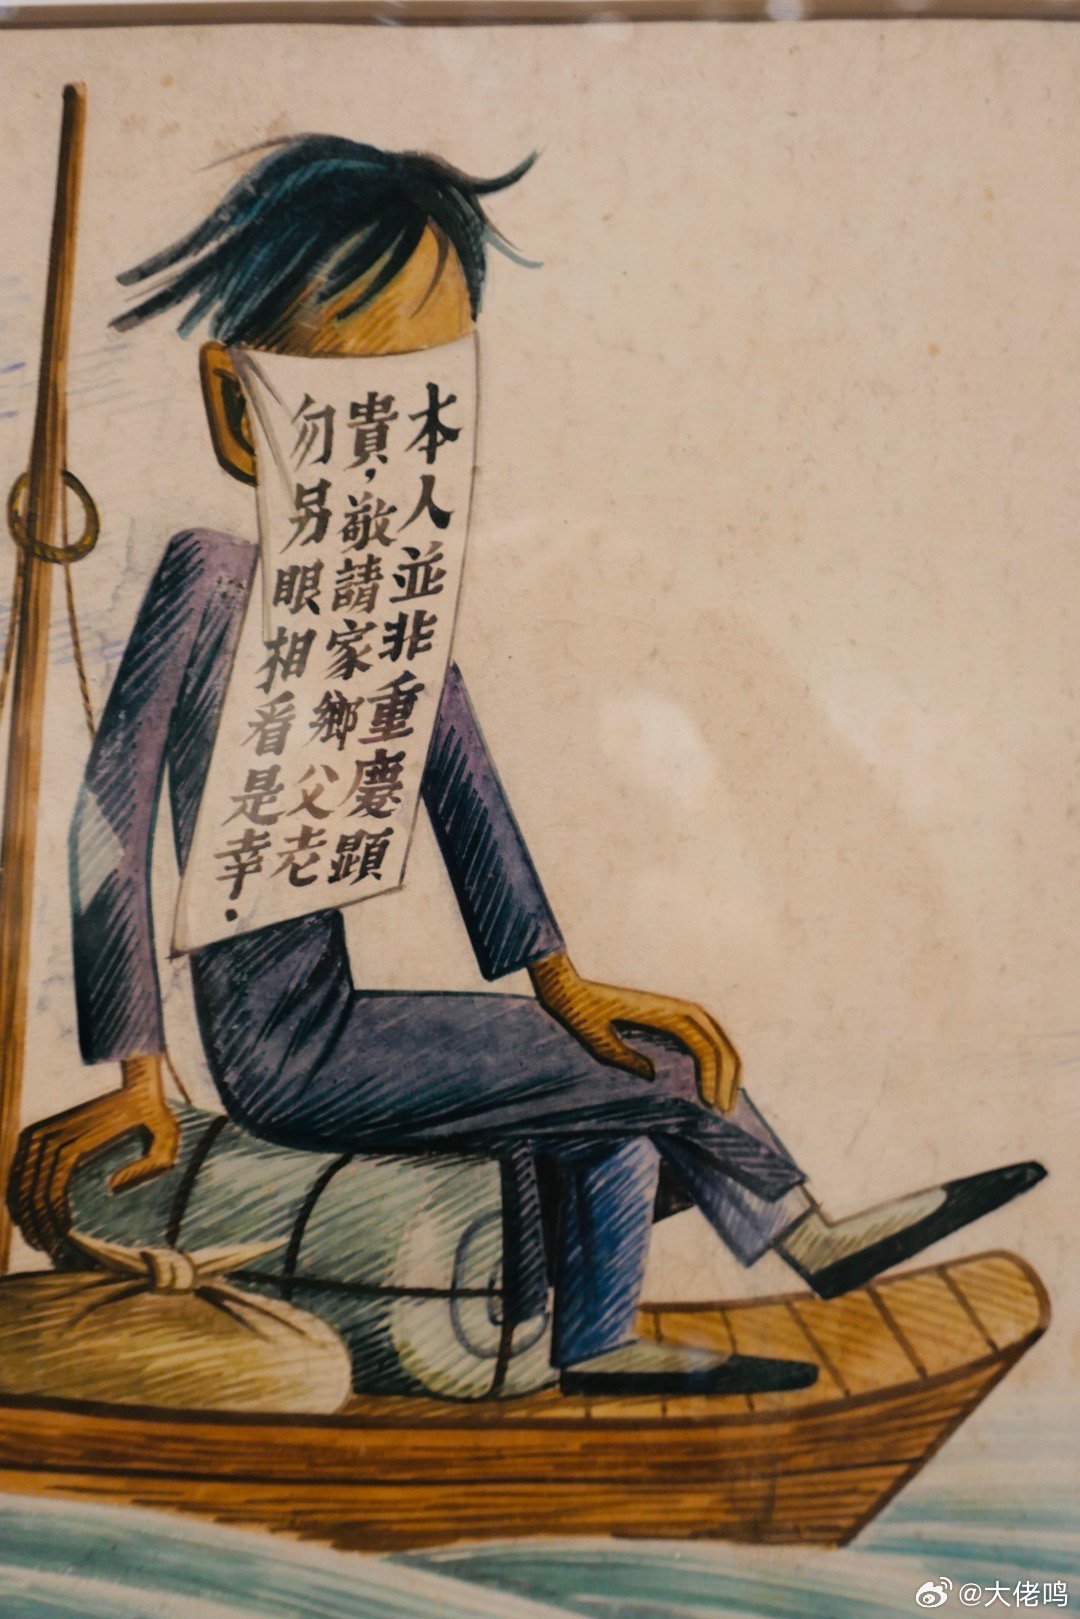 本人並非重慶顕
貴，敬請家鄉父老
勿另眼相看是幸．
@大佬鸣